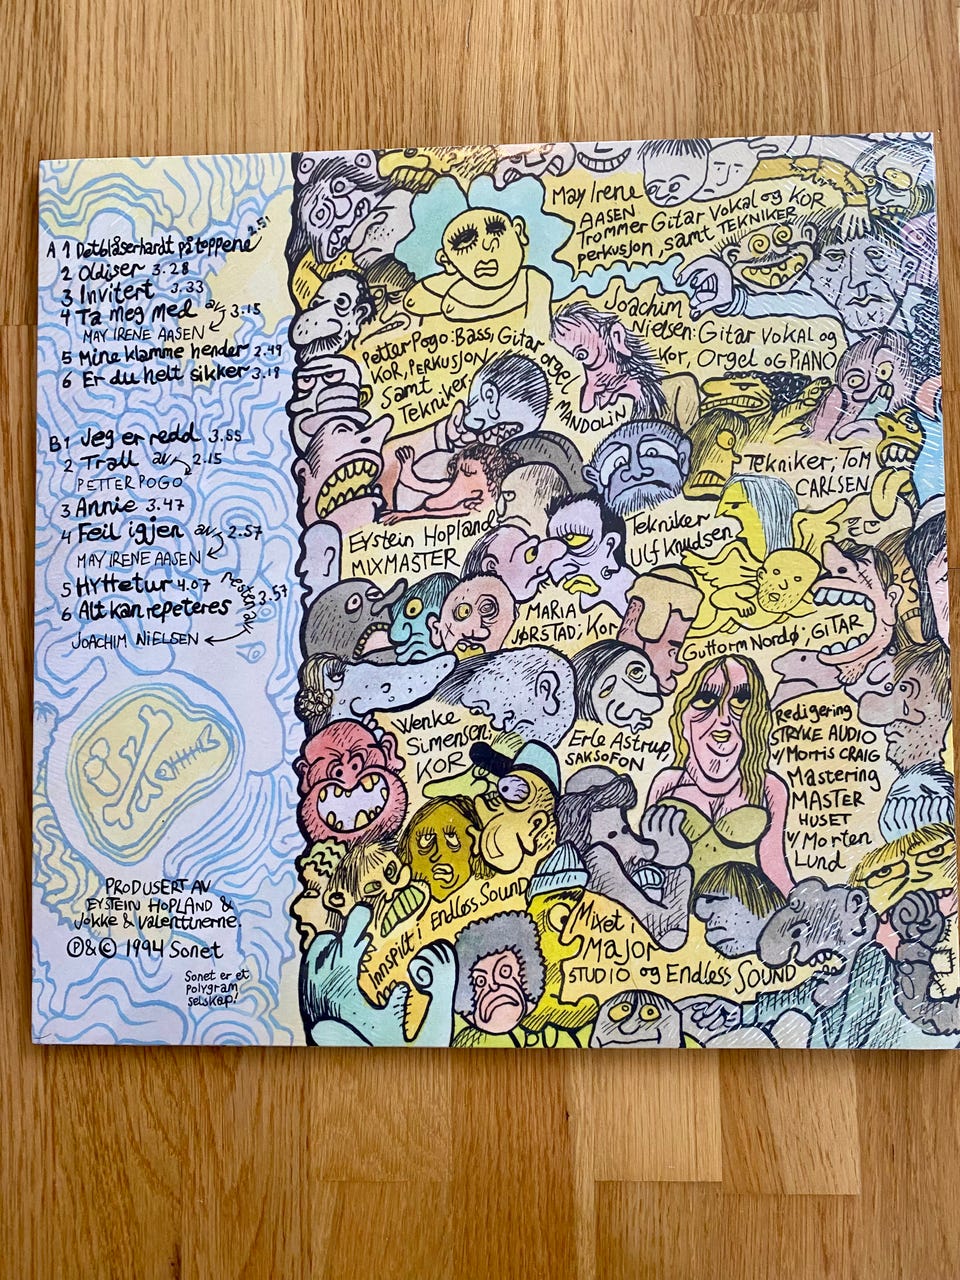 A 1 Detblåserhardt på toppene 2.51
2 Oldiser 3.28
3 Invitert 3.33
4 Ta meg med av 3.15
MAY IRENE AASEN
5 Mine klamme hender 2.49
6 Er du helt sikker 3.18
B1 Jeg er redd 3.55
2 Trall av 2.15
PETTER POGO
3 Annie 3.47
4 Feil igjen av 2.57
MAY IRENE AASEN
5 HYttetur 4.07
6 Alt kan repeteres nesten av 3.57
JOACHIM NIELSEN
PRODUSERT AV
EYSTEIN HOPLAND &
Jokke & Valenttinerne.
Ⓟ&© 1994 Sonet
Sonet er et
polygram
selskap!
May Irene
AASEN
Trommer Gitar Vokal og KOR
perkusjon, samt TEKNIKER
Joachim
Nielsen: Gitar Vokal og
Kor, Orgel og PIANO
Petter Pogo: Bass, Gitar orgel
KOR, PERKUSJON MANDOLIN
Samt
Tekniker
Tekniker; TOM
CARLSEN
Eystein Hopland
MIXMASTER
Tekniker
Ulf Knudsen
MARIA
JØRSTAD; Kor
Guttorm Nordø; GITAR
Wenke
Simensen;
KOR
Erle Astrup,
SAKSOFON
Redigering
STRYKE AUDIO
v/Morris CRAIG
Mastering
MASTER
HUSET
v/ Morten
Lund
Innspilt i Endless Sound
Mixet i
Major
STUDIO og Endless Sound